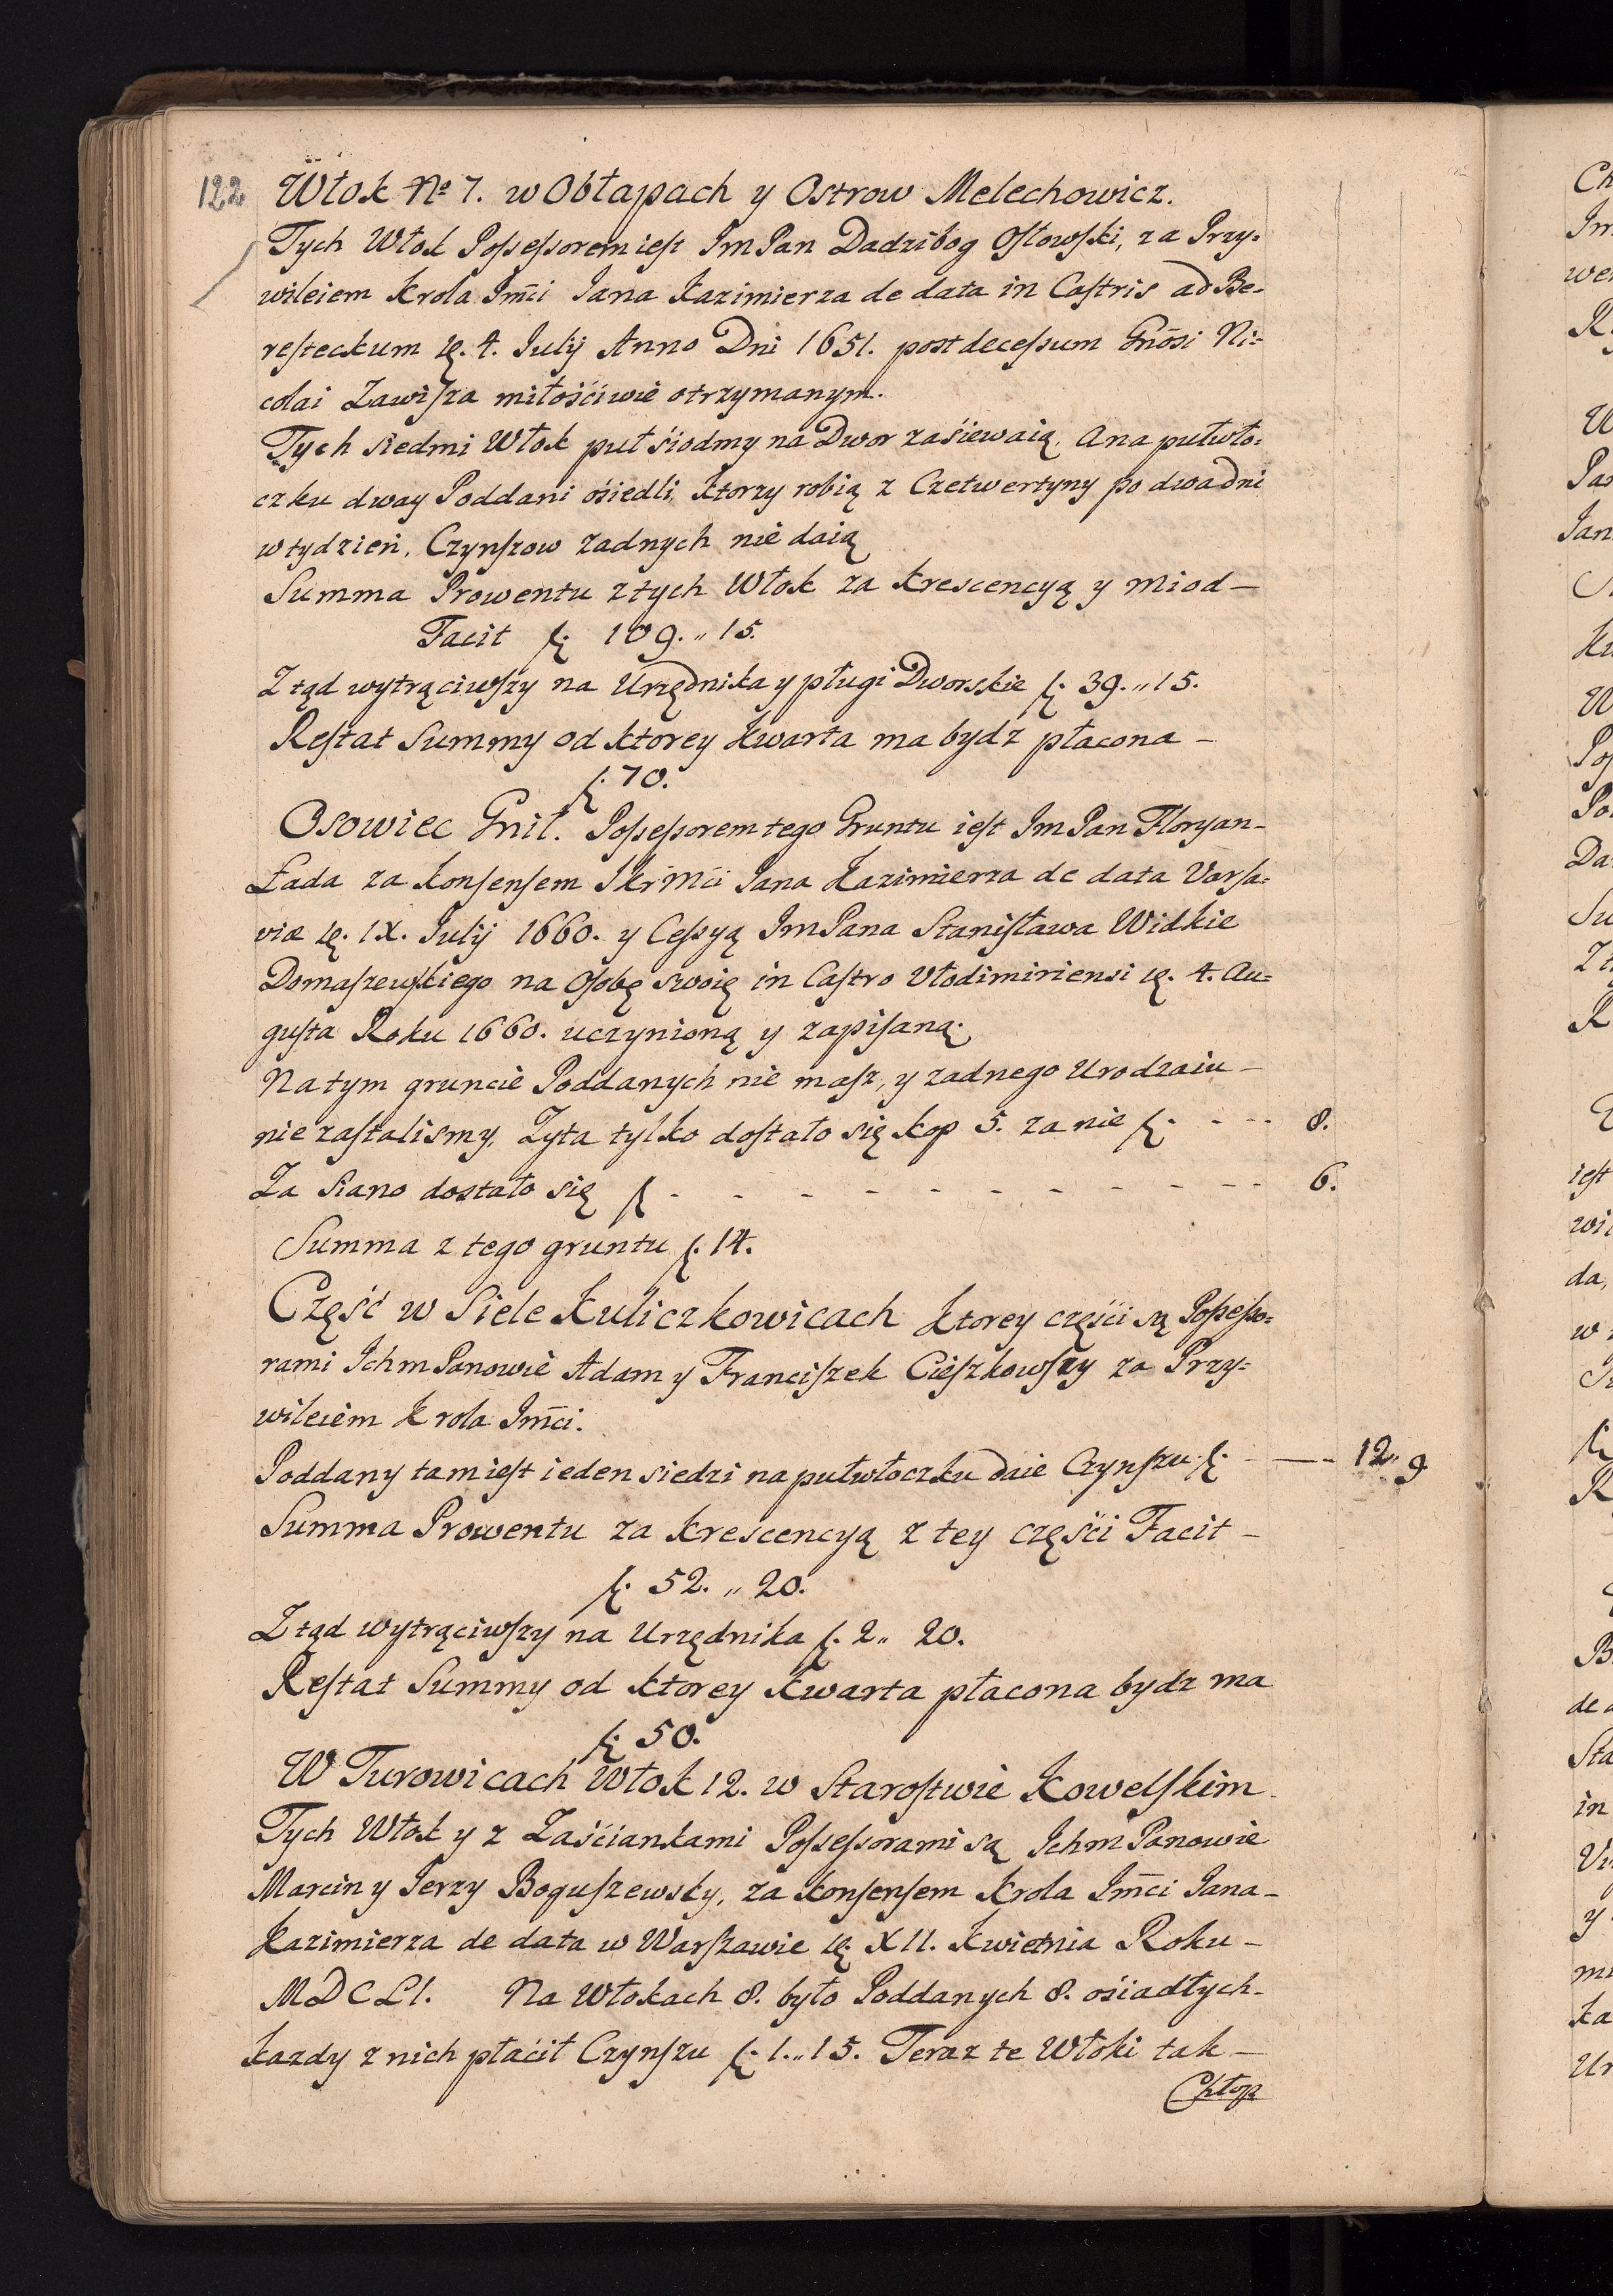 122 Włok No 7. w Obłapach y Ostrow Melechowicz.
Tych Włok Possessorem iest Im Pan Dadzibog Osłowski, za Przy-
wileiem Krola Jm̄ci Jana Kazimierza de data in Castris ad Be-
resteckum 4. Julij Anno Dni 1651. post decessum Gn̄osi Ni-
colai Zawisza miłościwie otrzymanym.
Tych siedmi Włok puł siodmy na Dwor zasiewaią, a na pułwło-
czku dway Poddani osiedli, ktorzy robią z Czetwertyny po dwa dni
w tydzień, Czynszow zadnych nie daią
Summa Prowentu z tych Włok za krescencyą y miod —
Facit f. 109. „ 15.
Ztąd wytrąciwszy na Urzędnika y pługi Dworskie f. 39. „ 15.
Restat Summy od ktorey kwarta ma bydź płacona —
f. 70.
Osowiec Gnił. Possessorem tego Gruntu iest Im Pan Floryan-
Łada za konsensem JKrMci Jana Kazimierza de data Varsa-
viæ IX. Julij 1660. y Cessyą Im Pana Stanisława Widkie
Domaszewskiego na Osobę swoię in Castro Vlodimiriensi 4. Au-
gusta Roku 1660. uczynioną y zapisaną.
Na tym gruncie Poddanych nie masz, y zadnego Urodzaiu —
nie zastalismy, Zyta tylko dostało się kop 5. za nie f. - - - 8.
Za siano dostało się f - - - - - - - - - - - 6.
Summa z tego gruntu f. 14.
Część w Siele Kuliczkowicach ktorey części są Possesso-
rami Ichm Panowie Adam y Franciszek Cieszkowszy za Przy-
wileiem Krola Jm̄ci.
Poddany tam iest ieden siedzi na pułwłoczku daie Czynszu f. - — - 12 „ 9
Summa Prowentu za krescencyą z tey części Facit —
f. 52. „ 20.
Ztąd wytrąciwszy na Urzędnika f. 2 „ 20.
Restat Summy od ktorey kwarta płacona bydz ma
f. 50.
W Turowicach Włok 12. w Starostwie Kowelskim
Tych Włok y z Zaściankami Possessorami są Ichm Panowie
Marcin y Jerzy Boguszewsky, za konsensem Krola Jm̄ci Jana-
Kazimierza de data w Warszawie XII. Kwietnia Roku —
MDCLI. Na Włokach 8. było Poddanych 8. osiadłych-
kazdy z nich płacił Czynszu f. 1. „ 15. Teraz te Włoki tak —
Chłop